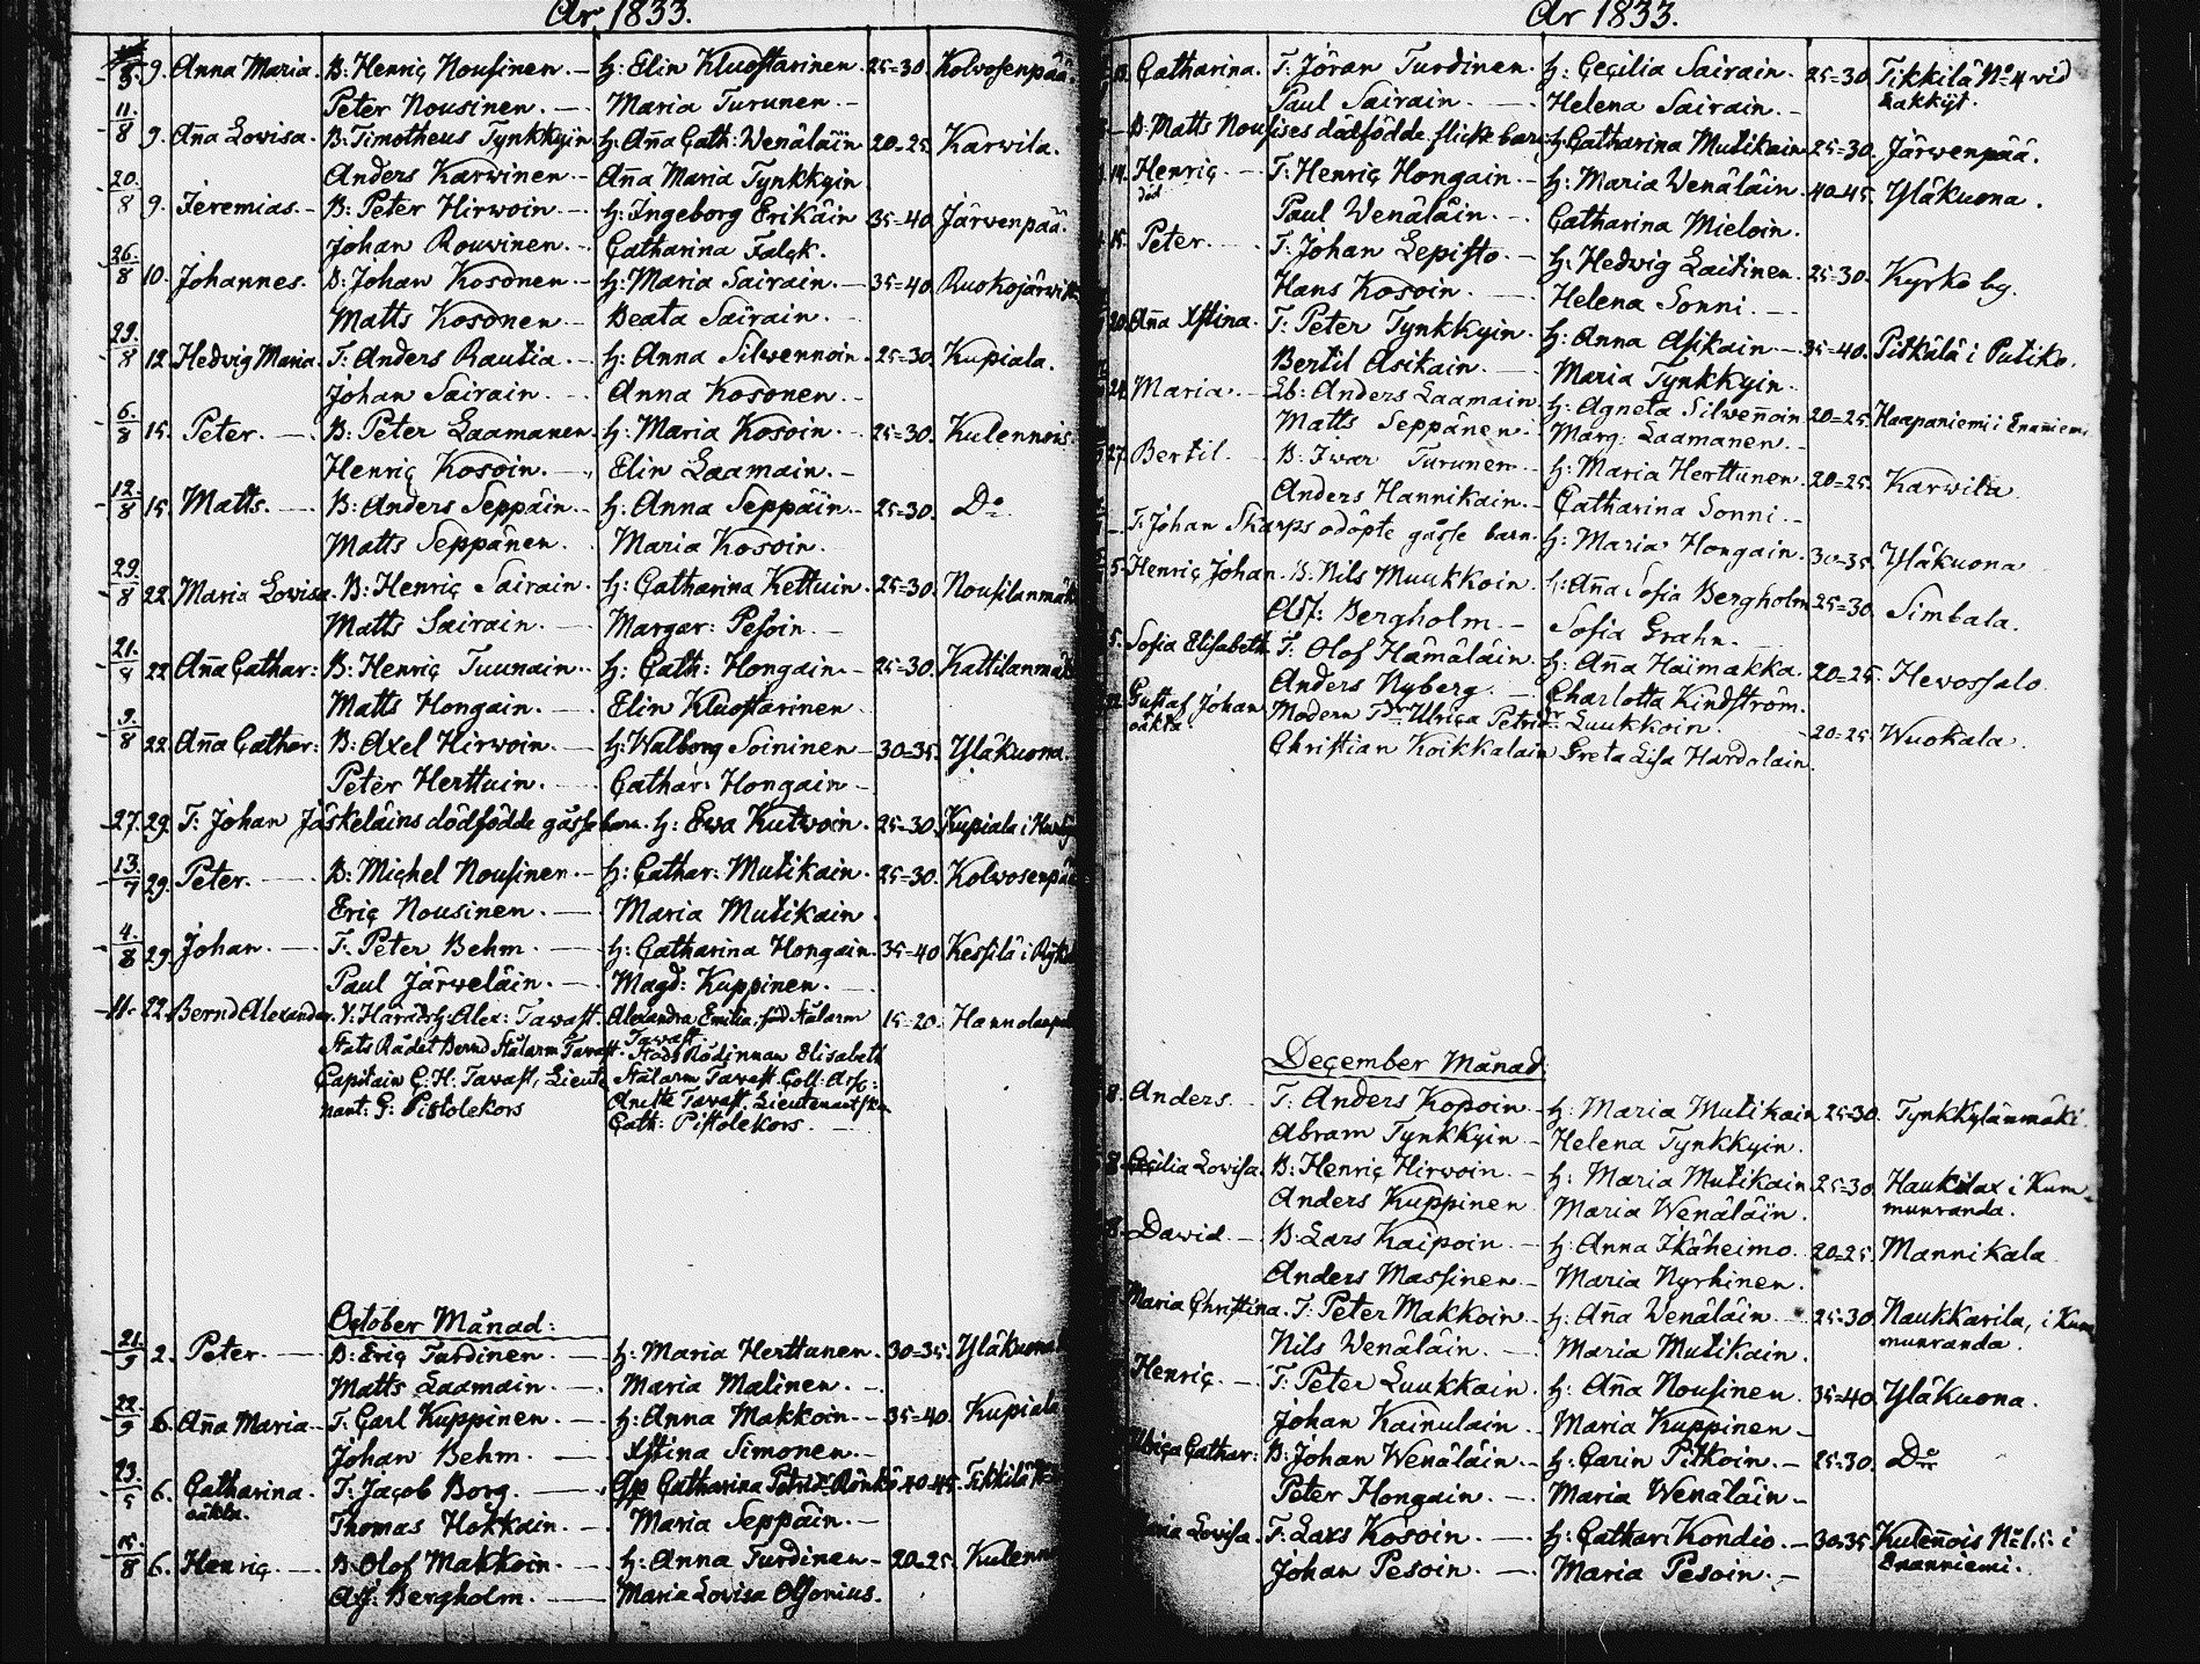 År 1833.
5. 9. Anna Maria. B: Henriç Nousinen. – H: Elin Kluostarinen. 25=30. Kolvosenpää
Peter Nousinen. — Maria Turunen –
11./8 9. Aña Lovisa. B: Timotheus Tynkkyin H: Aña Çath: Wenäläin 20-25. Karwila.
Anders Karwinen – Aña Maria Tynkkyin
20./8 9. Jeremias. – B: Peter Hirwoin. – H: Ingeborg Erikäin 35=40. Järvenpää.
Johan Rouvinen. – Çatharina Falçk.
26./8 10. Johannes. B: Johan Kosonen – H: Maria Sairain. – 35=40. Ruokojärwi
Matts Kosonen – Beata Sairain.
29./8 12. Hedvig Maria. T: Anders Rautia. – H: Anna Silwennoin. 25=30. Kupiala.
Johan Sairain. – Anna Kosonen. –
6./8 15. Peter. — B: Peter Laamanen. H: Maria Kosoin. – 25=30. Kulennois.
Henriç Kosoin. — Elin Laamain. –
12./8 15. Matts. — B: Anders Seppäin. – H: Anna Seppäin. – 25=30. Do
Matts Seppänen. Maria Kosoin.
29./8 22. Maria Lovisa. B: Henriç Sairain. H: Çatharina Kettuin. 25=30. Nousilanmäk
Matts Sairain. — Margar: Pesoin. –
21./8 22. Aña Çathar: B: Henriç Tuunain. H: Çath: Hongain. – 25=30. Kattilanmäk
Matts Hongain. — Elin Kluostarinen
9./8 22. Aña Çathar: B: Axel Hirwoin. — H: Walborg Soininen – 30=35. Yläkuona.
Peter Herttuin. — Çathar: Hongain –
27. 29. T: Johan Jäskeläins dödfödde gåsse barn. H: Ewa Kutwoin. 25=30. Kupiala i
13./7 29. Peter. — B: Miçhel Nousinen. – H: Çathar: Mutikain. 25=30. Kolvosenpää
Eriç Nousinen. — Maria Mutikain.
4./8 29. Johan. — T: Peter Behm. — H: Çatharina Hongain. 35=40 Kessilä i
Paul Järweläin. — Magd: Kuppinen. —
11. 22. Bernd Alexander. V: Häradsh: Alex: Tavast. Alexandra Emilia, född Stålarm 15=20. Hannolanpel
Tavast.
Stats Rådet Bernd Stålarm Tavast. Stads Rådinnan Elisabeth
Çapitain Ç: H: Tavast, Lieute Stålarm Tavast. Çoll: Ass:
nant: G: Pistolekors Anette Tavast. Lieutenantskan
Çath: Pistolekors. —
Oçtober Månad:
21./9 2. Peter. — B: Eriç Turdinen. — H: Maria Herttunen. 30=35. Yläkuona
Matts Laamain. — Maria Malinen. –
22./9 6. Aña Maria – T: Çarl Kuppinen. — H: Anna Makkoin – 35=40. Kupiala
Johan Behm. — Xstina Simonen. –
23./9 6. Çatharina. T: Jaçob Borg. — Çatharina Petrid:r Rönkö 40=45. Tikkilä
oäkta. Thomas Hokkain. — Maria Seppäin. –
15./8 6. Henriç. — B: Olof Makkoin. H: Anna Turdinen – 20=25. Kulenn
Af: Bergholm. — Maria Lovisa Olsonius.
År 1833.
13. Çatharina. T: Jöran Turdinen. H: Çeçilia Sairain. 25=30. Tikkilä No 4 vid
Paul Sairain. — Helena Sairain. – Lakkyt.
B: Matts Nousises dödfödde flicke barn. H: Çatharina Mutikain 25=30. Järwenpää.
14. Henriç. — T: Henriç Hongain. – H: Maria Wenäläin. 40=45. Yläkuona.
död Paul Wenäläin. – Çatharina Mieloin.
15. Peter. — T: Johan Lepisto. – H: Hedwig Laitinen. 25=30. Kyrko by.
Hans Kosoin. — Helena Sonni. –
20. Aña Xstina. T: Peter Tynkkyin. H: Anna Asikain – 35=40. Pitkälä i Putiko.
Bertil Asikain. — Maria Tynkkyin.
24. Maria. — Lb: Anders Laamain. H: Agneta Silweñoin 20=25. Haapaniemi i Enañiemi
Matts Seppänen. – Marg: Laamanen. –
27. Bertil. B: Iwar Turunen. – H: Maria Herttunen. 20=25. Karwila.
Anders Hannikain. – Çatharina Sonni. –
T: Johan Skarps odöpte gåsse barn. H: Maria Hongain. 30=35. Yläkuona
5. Henriç Johan. B: Nils Muukkoin. H: Aña Sofia Bergholm 25=30. Simbala.
Af: Bergholm. – Sofia Grahn.
5. Sofia Elisabeth. T: Olof Hämäläin. H: Aña Haimakka. 20=25. Hevossalo.
Anders Nyberg. — Çharlotta Kindström.
Gustaf Johan Modern Ulriça Petrid:r Luukkoin. – 20=25. Wuokala.
oäkta. Christian Koikkalain Greta Lisa Hardolain.
Deçember Månad.
8. Anders. T: Anders Kopoin. – H: Maria Mutikain 25=30. Tynkkylänmäki.
Abram Tynkkyin – Helena Tynkkyin.
8. Çeçilia Lovisa. B: Henriç Hirwoin. – H: Maria Mutikain 25=30. Haukilax i Kum=
Anders Kuppinen Maria Wenäläin. munranda.
8. Dawid. – B: Lars Kaipoin. – H: Anna Ikäheimo. 20=25. Mannikala
Anders Massinen – Maria Nyrhinen.
Maria Christina. T: Peter Makkoin. – H: Aña Wenäläin. – 25=30. Naukkarila, i Kum
Nils Wenäläin. — Maria Mutikain. munranda.
Henriç. – T: Peter Luukkain. H: Aña Nousinen. 35=40. Yläkuona.
Johan Kainulain. Maria Kuppinen –
Ulriça Çathar: B: Johan Wenäläin – H: Çarin Pitkoin. – 25=30. Do
Peter Hongain. — Maria Wenäläin –
Maria Lovisa. T: Lars Kosoin. — H: Çathar: Kondio. – 30=35. Kuleñois No 1.5: i
Johan Pesoin. — Maria Pesoin. – Enanniemi.